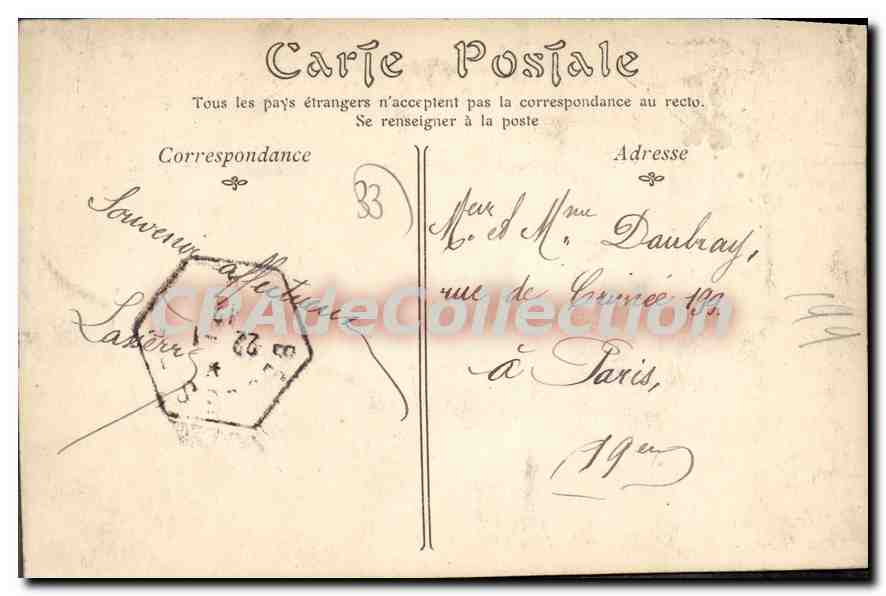 Carte Postale
Tous les pays étrangers n'acceptent pas la correspondance au recto.
Se renseigner à la poste
Correspondance
Adresse
33
Souvenir affectueux
Meur et Mme Daubray,
rue de Crimée 199.
à Paris,
19em
CPAdeCollection.com